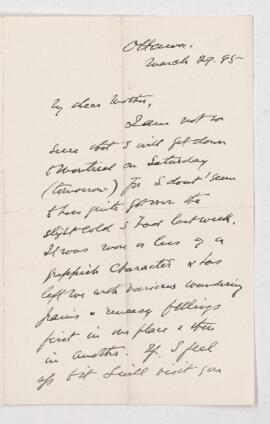 Ottawa.
March 29. 95-
My dear Mother,
I am not so
sure that I will get down
to Montreal on Saturday
(tomorrow) for I don't seem
to have quite got over the
slight cold I had last week.
It was more or less of a
grippish character & has
left me with various wandering
pains & uneasy feelings
first in one place & then
in another. If I feel
up to it I will visit you